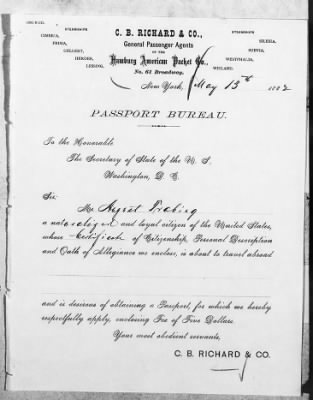 C. B. RICHARD & CO.,
General Passenger Agents
OF THE
Hamburg American Packet Co.,
No. 61 Broadway.
STEAMERS
CIMBRIA,
FRISIA,
GELLERT,
HERDER,
LESSING,
STEAMERS
SILESIA,
SUEVIA,
WESTPHALIA,
WIELAND.
New York, May 13th 1882
PASSPORT BUREAU.
To the Honorable
The Secretary of State of the U. S.
Washington, D. C.
Sir:
Mr. August
a naturalized and loyal citizen of the United States,
whose Certificate of Citizenship, Personal Description
and Oath of Allegiance we enclose, is about to travel abroad
and is desirous of obtaining a Passport, for which we hereby
respectfully apply, enclosing Fee of Five Dollars.
Your most obedient servants,
C. B. RICHARD & CO.